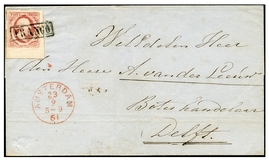 FRANCO
Weledelen Heer
den Heere A. van der Leeuw
Boterhandelaar
Delft.
ROTTERDAM
23
9
8-9
61